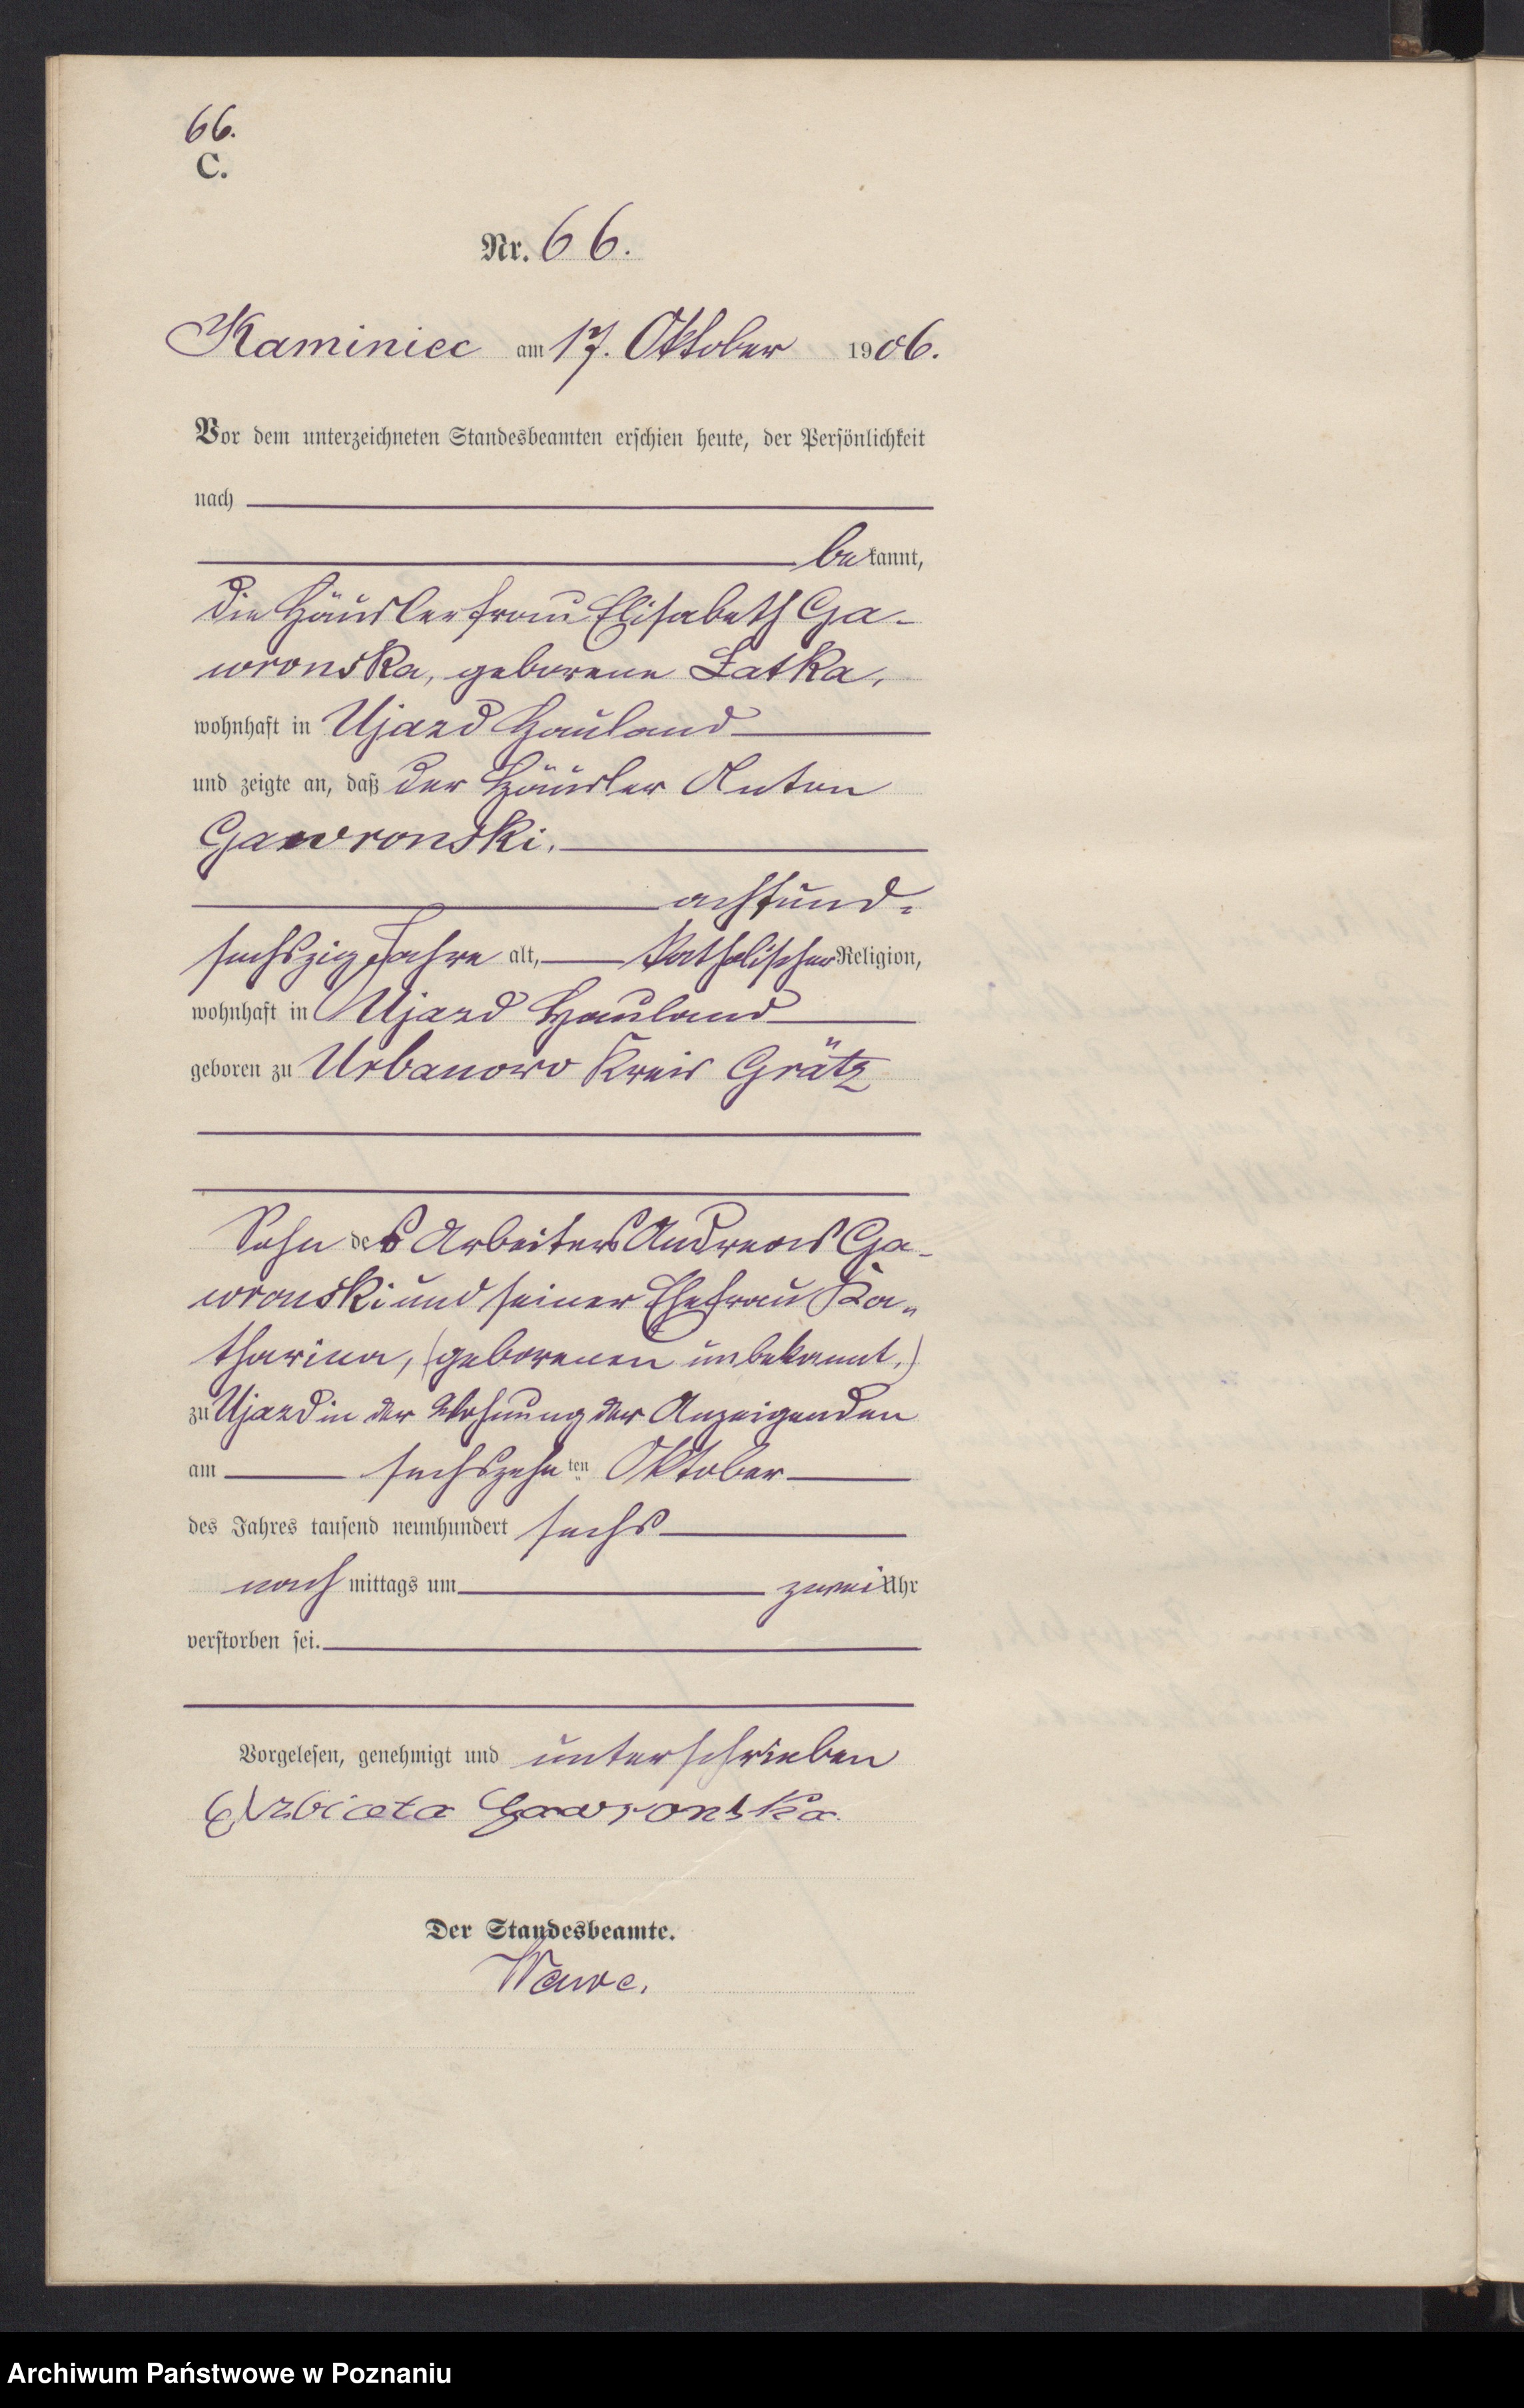 66.
C.
Nr. 66.
Kaminiec am 17. Oktober 1906.
Vor dem unterzeichneten Standesbeamten erschien heute, der Persönlichkeit
nach
bekannt,
die Häuslerfrau Elisabeth Ga-
wronska, geborene Łatka,
wohnhaft in Ujazd Hauland
und zeigte an, daß der Häusler Anton
Gawronski,
achtund-
sechszig Jahre alt, katholischer Religion,
wohnhaft in Ujazd Hauland
geboren zu Urbanowo Kreis Grätz
Sohn des Arbeiters Andreas Ga-
wronski und seiner Ehefrau Ka-
tharina, (geborenen unbekannt,)
zu Ujazd in der Wohnung der Anzeigenden
am sechszehnten Oktober
des Jahres tausend neunhundert sechs
nachmittags um zwei Uhr
verstorben sei.
Vorgelesen, genehmigt und unterschrieben
Gawronska
Der Standesbeamte.
Archiwum Państwowe w Poznaniu